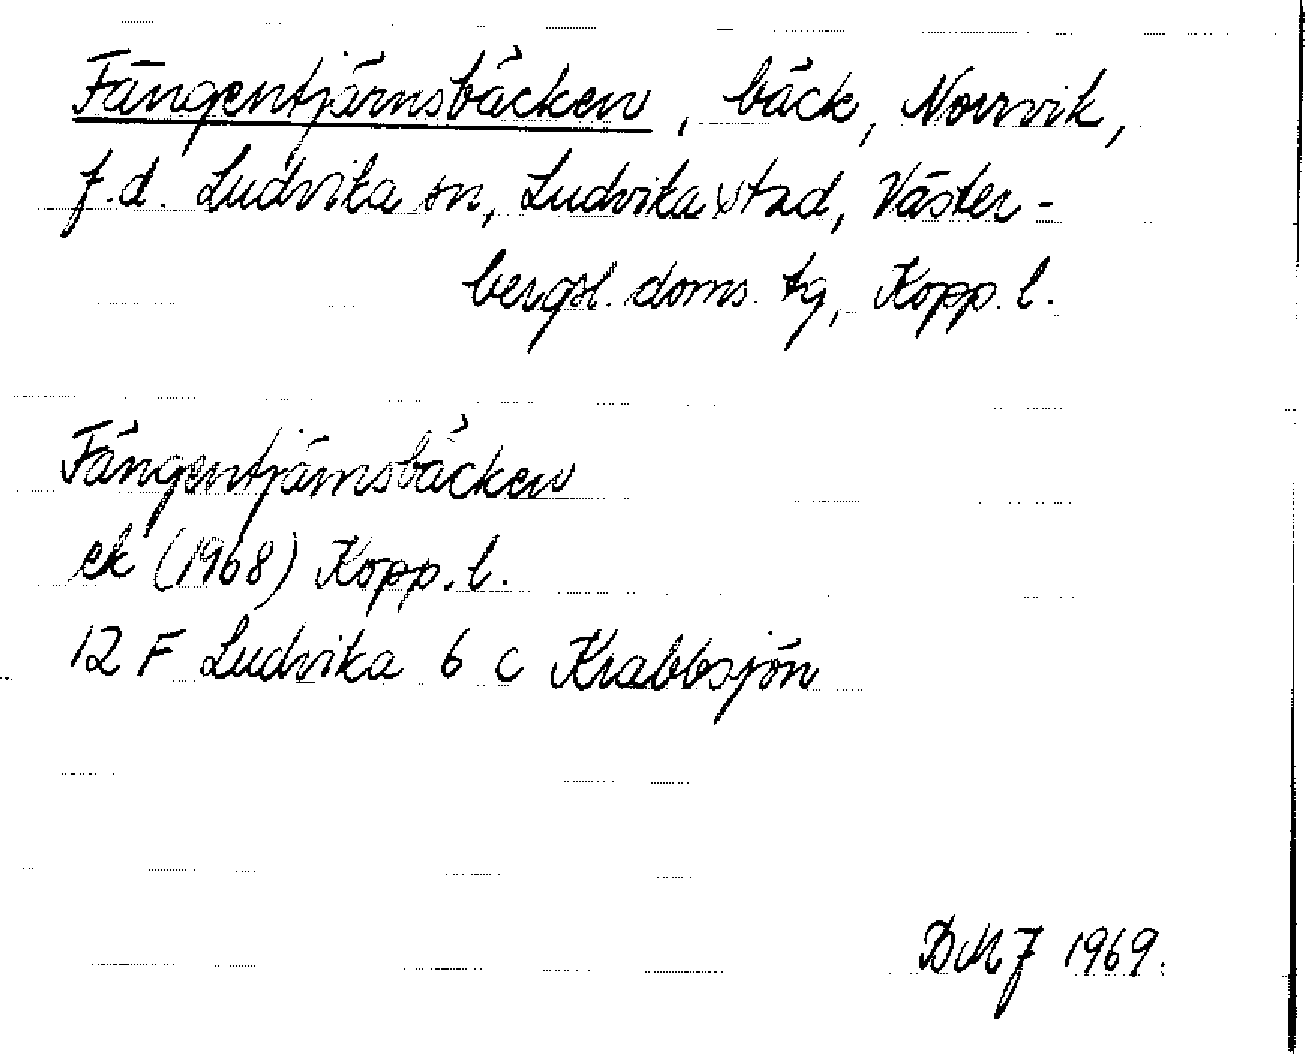 Fängentjärnsbäcken, bäck, Norrvik,
f.d. Ludvika sn, Ludvika stad, Väster-
bergsl. doms. tg, Kopp. l.
Fängentjärnsbäcken
ek (1968) Kopp. l.
12 F Ludvika 6 c Krabbsjön
DMJ 1969.